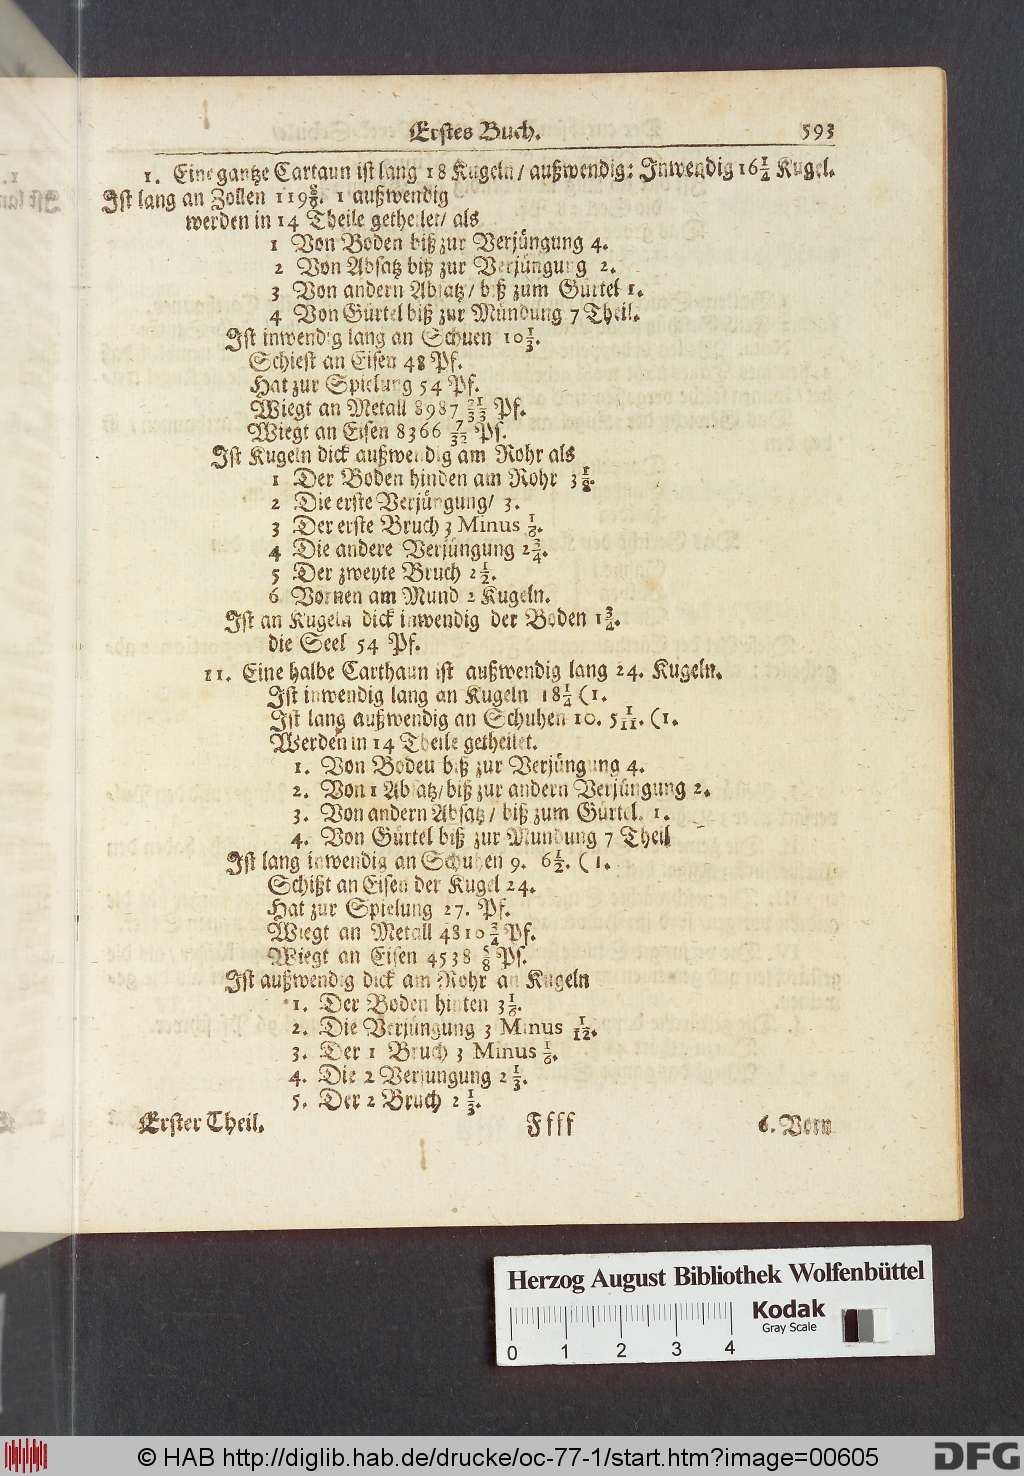 Erstes Buch. 593
1. Eine gantze Cartaun ist lang 18 Kugeln / außwendig: Inwendig 16 1/4 Kugel.
Ist lang an Zollen 119 8/9. 1 außwendig
werden in 14 Theile getheilet/ als
1 Von Boden biß zur Verjüngung 4.
2 Von Absatz biß zur Verjüngung 2.
3 Von andern Absatz/ biß zum Gürtel 1.
4 Von Gürtel biß zur Mündung 7 Theil.
Ist inwendig lang an Schuen 10 1/3.
Schiest an Eisen 48 Pf.
Hat zur Spielung 54 Pf.
Wiegt an Metall 8987 21/33 Pf.
Wiegt an Eisen 8366 7/32 Pf.
Ist Kugeln dick außwendig am Rohr als
1 Der Boden hinden am Rohr 3 1/8.
2 Die erste Verjüngung/ 3.
3 Der erste Bruch 3 Minus 1/6.
4 Die andere Verjüngung 2 3/4.
5 Der zweyte Bruch 2 1/2.
6 Vornen am Mund 2 Kugeln.
Ist an Kugeln dick inwendig der Boden 1 3/4.
die Seel 54 Pf.
11. Eine halbe Carthaun ist außwendig lang 24. Kugeln.
Ist inwendig lang an Kugeln 18 1/4 (1.
Ist lang außwendig an Schuhen 10. 5 1/11. (1.
Werden in 14 Theile getheilet.
1. Von Bodeu biß zur Verjüngung 4.
2. Von 1 Absatz/ biß zur andern Verjüngung 2.
3. Von andern Absatz / biß zum Gürtel. 1.
4. Von Gürtel biß zur Mündung 7 Theil
Ist lang inwendig an Schuhen 9. 6 1/2. (1.
Schißt an Eisen der Kugel 24.
Hat zur Spielung 27. Pf.
Wiegt an Metall 4810 3/4 Pf.
Wiegt an Eisen 4538 5/8 Pf.
Ist außwendig dick am Rohr an Kugeln
1. Der Boden hinten 3 1/6.
2. Die Verjüngung 3 Minus 1/12.
3. Der 1 Bruch 3 Minus 1/6.
4. Die 2 Verjungung 2 1/3.
5. Der 2 Bruch 2 1/3.
Erster Theil. Ffff 6. Vorn
Herzog August Bibliothek Wolfenbüttel
Kodak
Gray Scale
0 1 2 3 4
© HAB http://diglib.hab.de/drucke/oc-77-1/start.htm?image=00605 DFG